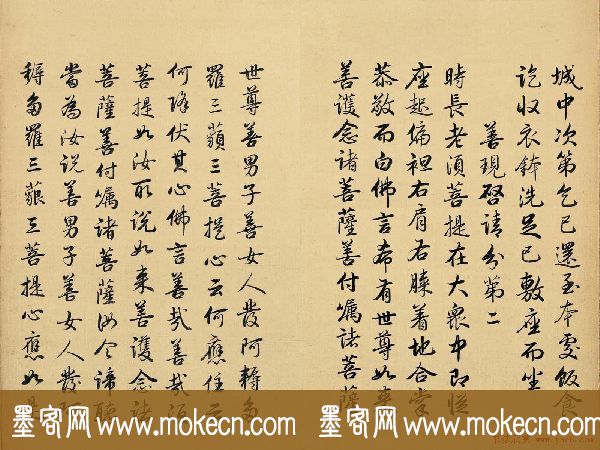 城中次第乞已還至本處飯食
訖收衣鉢洗足已敷座而坐
善現啓請分第二
時長老須菩提在大衆中即從
座起偏袒右肩右膝着地合掌
恭敬而白佛言希有世尊如來
善護念諸菩薩善付嘱諸菩薩
世尊善男子善女人發阿耨多
羅三藐三菩提心云何應住云
何降伏其心佛言善哉善哉須
菩提如汝所說如来善護念諸
菩薩善付嘱諸菩薩汝今諦聽
當為汝說善男子善女人發阿
耨多羅三藐三菩提心應如是
墨客网 www.mokecn.com 墨客网 www.mokecn.com